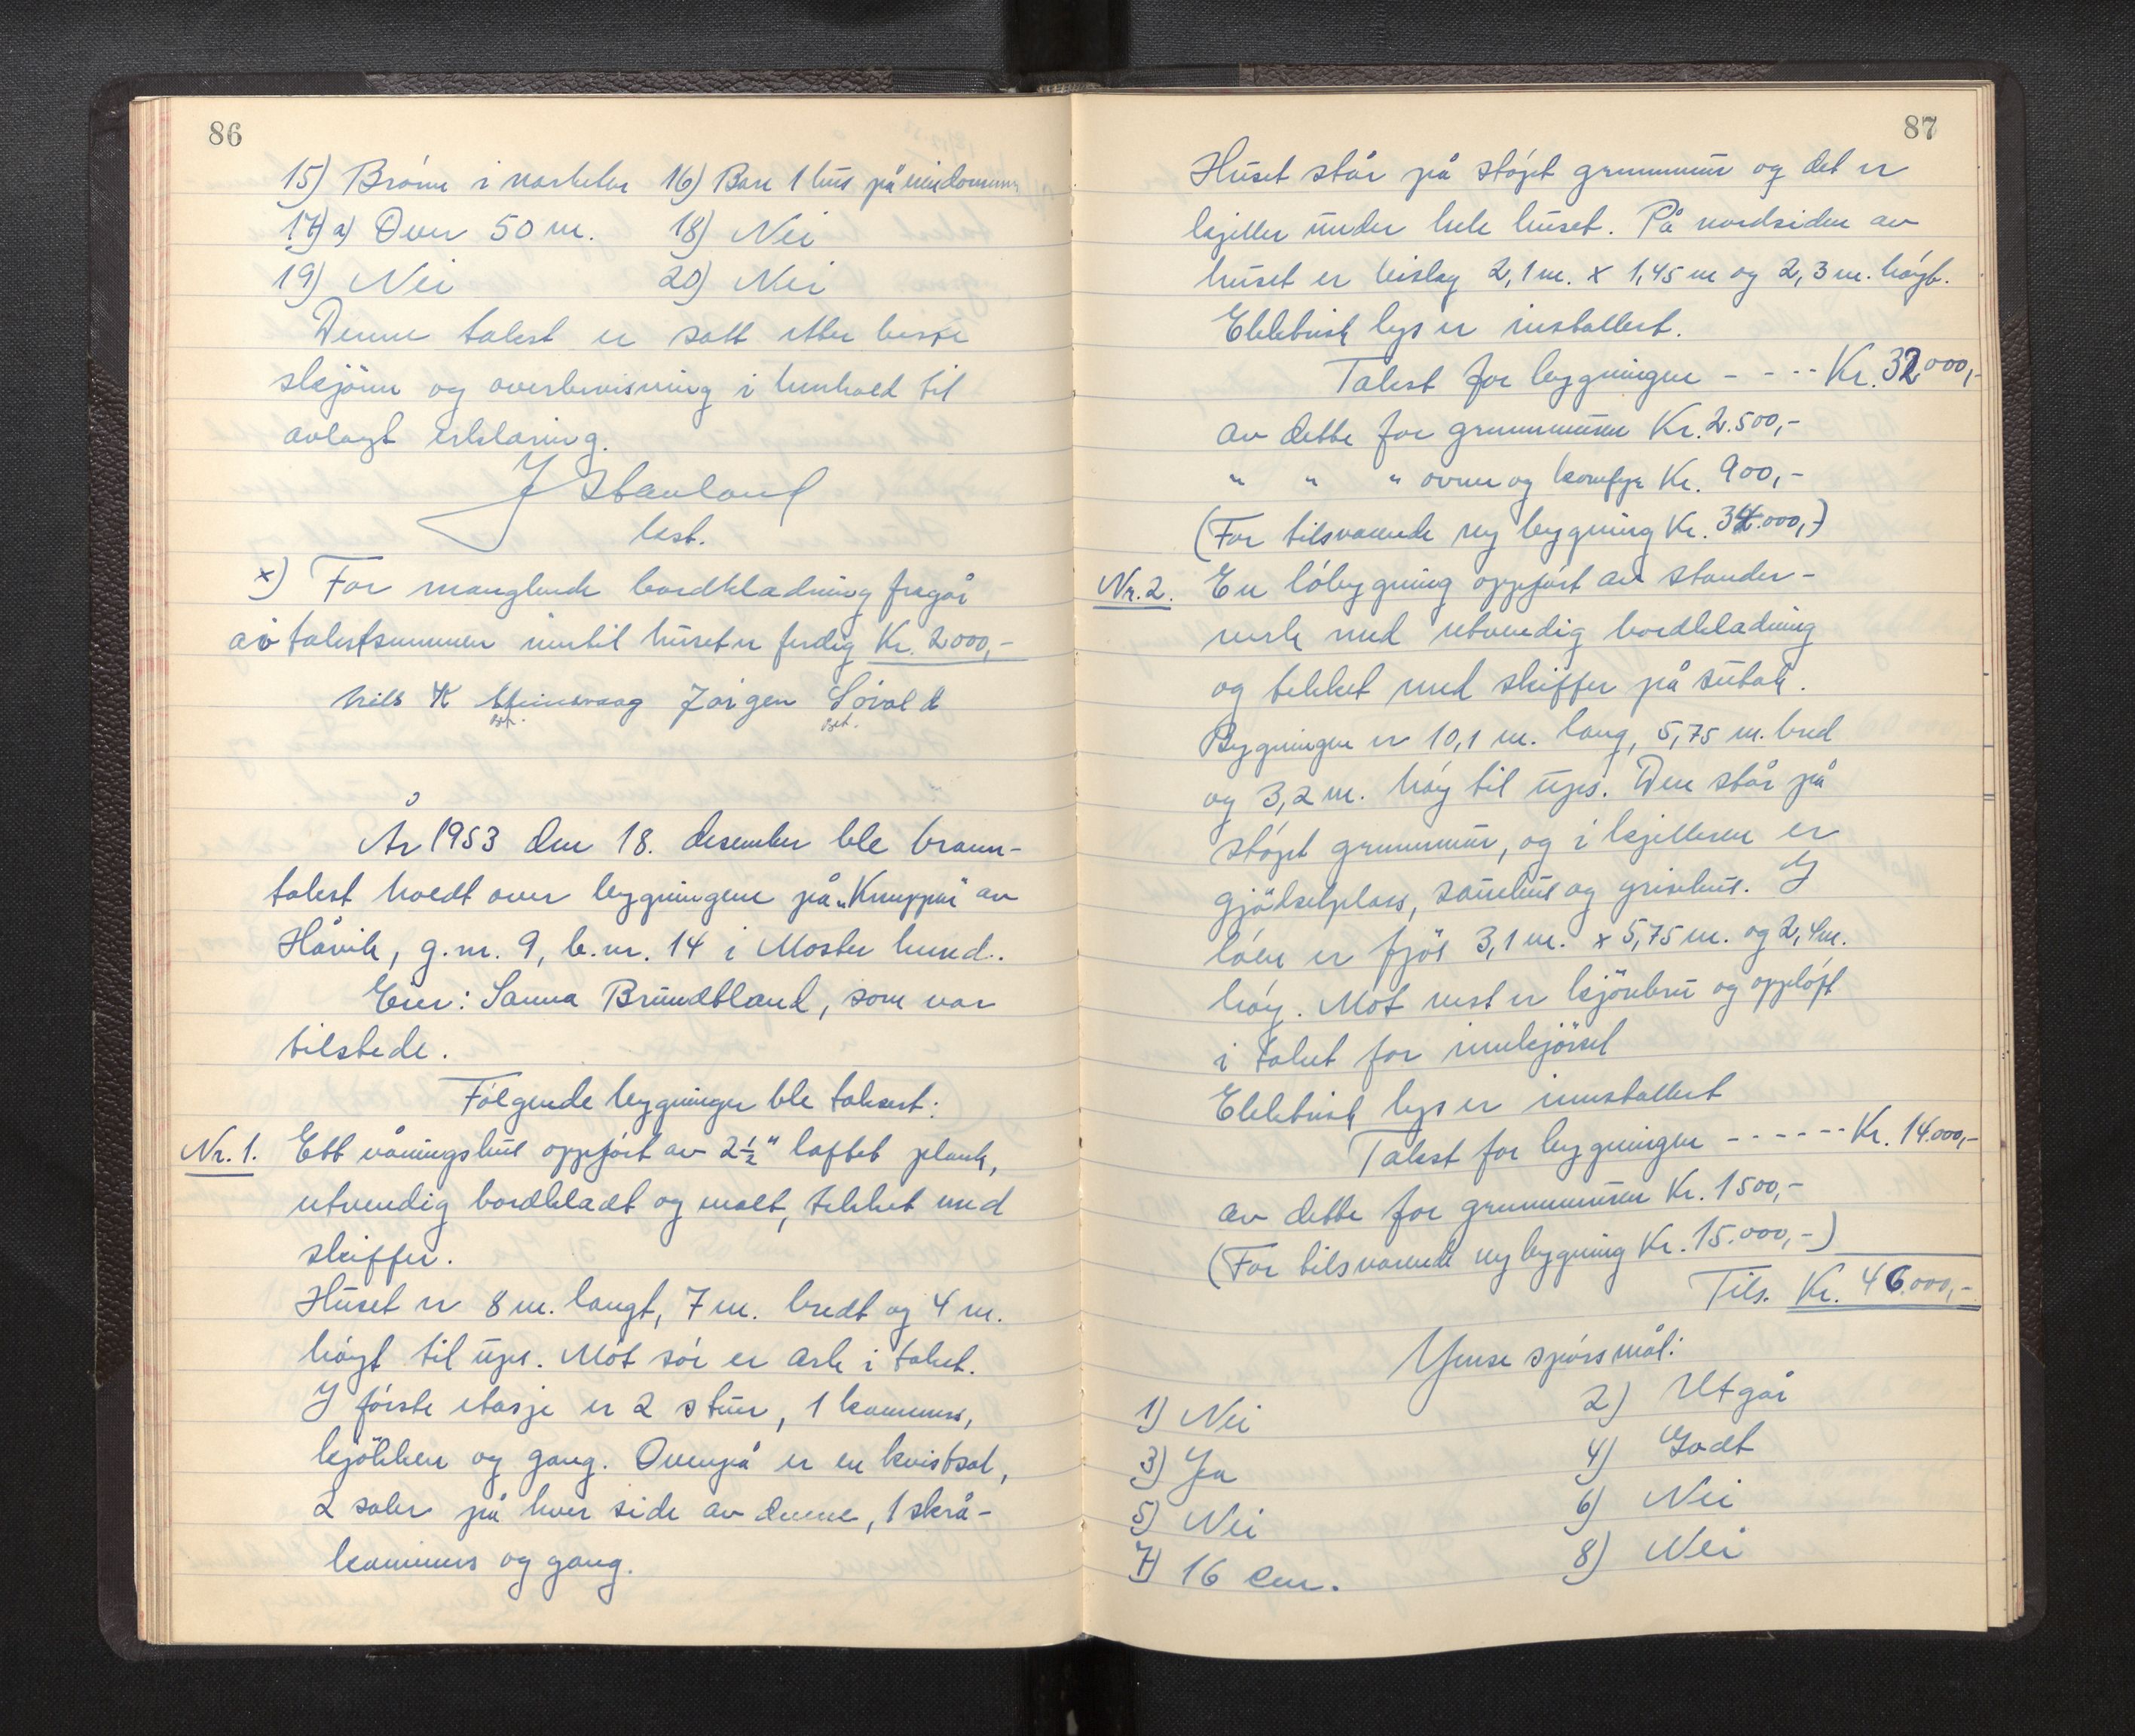 86
15) Brønn i nærheten 16) Bare 1 hus på eiendommen
17) a) Over 50 m. 18) Nei
19) Nei 20) Nei
Denne takst er satt etter beste
skjønn og overbevisning i henhold til
avlagt erklæring.
J Stavland
lest.
x) For manglende bordkledning fragår
av takstsummen inntil huset er ferdig Kr. 2000,-
Nils K Steinsvaag Jørgen Søvold
År 1953 den 18. desember ble brann-
takst holdt over bygningene på "Knuppen" av
Håvik, g.nr. 9, b.nr. 14 i Moster herred.
Eier: Sanna Brundtland, som var
tilstede.
Følgende bygninger ble taksert:
Nr. 1. Ett våningshus oppført av 2½" laftet plank,
utvendig bordkledt og malt, tekket med
skiffer.
Huset er 8 m. langt, 7 m. bredt og 4 m.
høyt til ups. Mot sør er ark i taket.
I første etasje er 2 stuer, 1 kammers,
kjøkken og gang. Ovenpå er en kvistsal,
2 saler på hver side av denne, 1 skrå-
kammers og gang.
87
Huset står på støpt grunnmur og det er
kjeller under hele huset. På nordsiden av
huset er bislag 2,1 m. x 1,45 m og 2,3 m. høyt.
Elektrisk lys er installert.
Takst for bygningen - - - - Kr. 32000,-
av dette for grunnmuren Kr. 2.500,-
" " " ovner og komfyr Kr. 900,-
(For tilsvarende ny bygning Kr. 34.000,-)
Nr. 2. En løbygning oppført av stender-
verk med utvendig bordkledning
og tekket med skiffer på sutak.
Bygningen er 10,1 m. lang, 5,75 m. bred
og 3,2 m. høy til ups. Den står på
støpt grunnmur, og i kjelleren er
gjødselplass, sauehus og grisehus. I
løen er fjøs 3,1 m. x 5,75 m. og 2,4 m.
høy. Mot vest er kjørebru og oppløft
i taket for innkjørsel
Elektrisk lys er innstallert
Takst for bygningen - - - - - - Kr. 14.000,-
av dette for grunnmuren Kr. 1500,-
(For tilsvarende ny bygning Kr. 15.000,-)
Tils. Kr. 46.000,-
Ymse spørsmål:
1) Nei 2) Utgår
3) Ja 4) Godt
5) Nei 6) Nei
7) 16 cm. 8) Nei